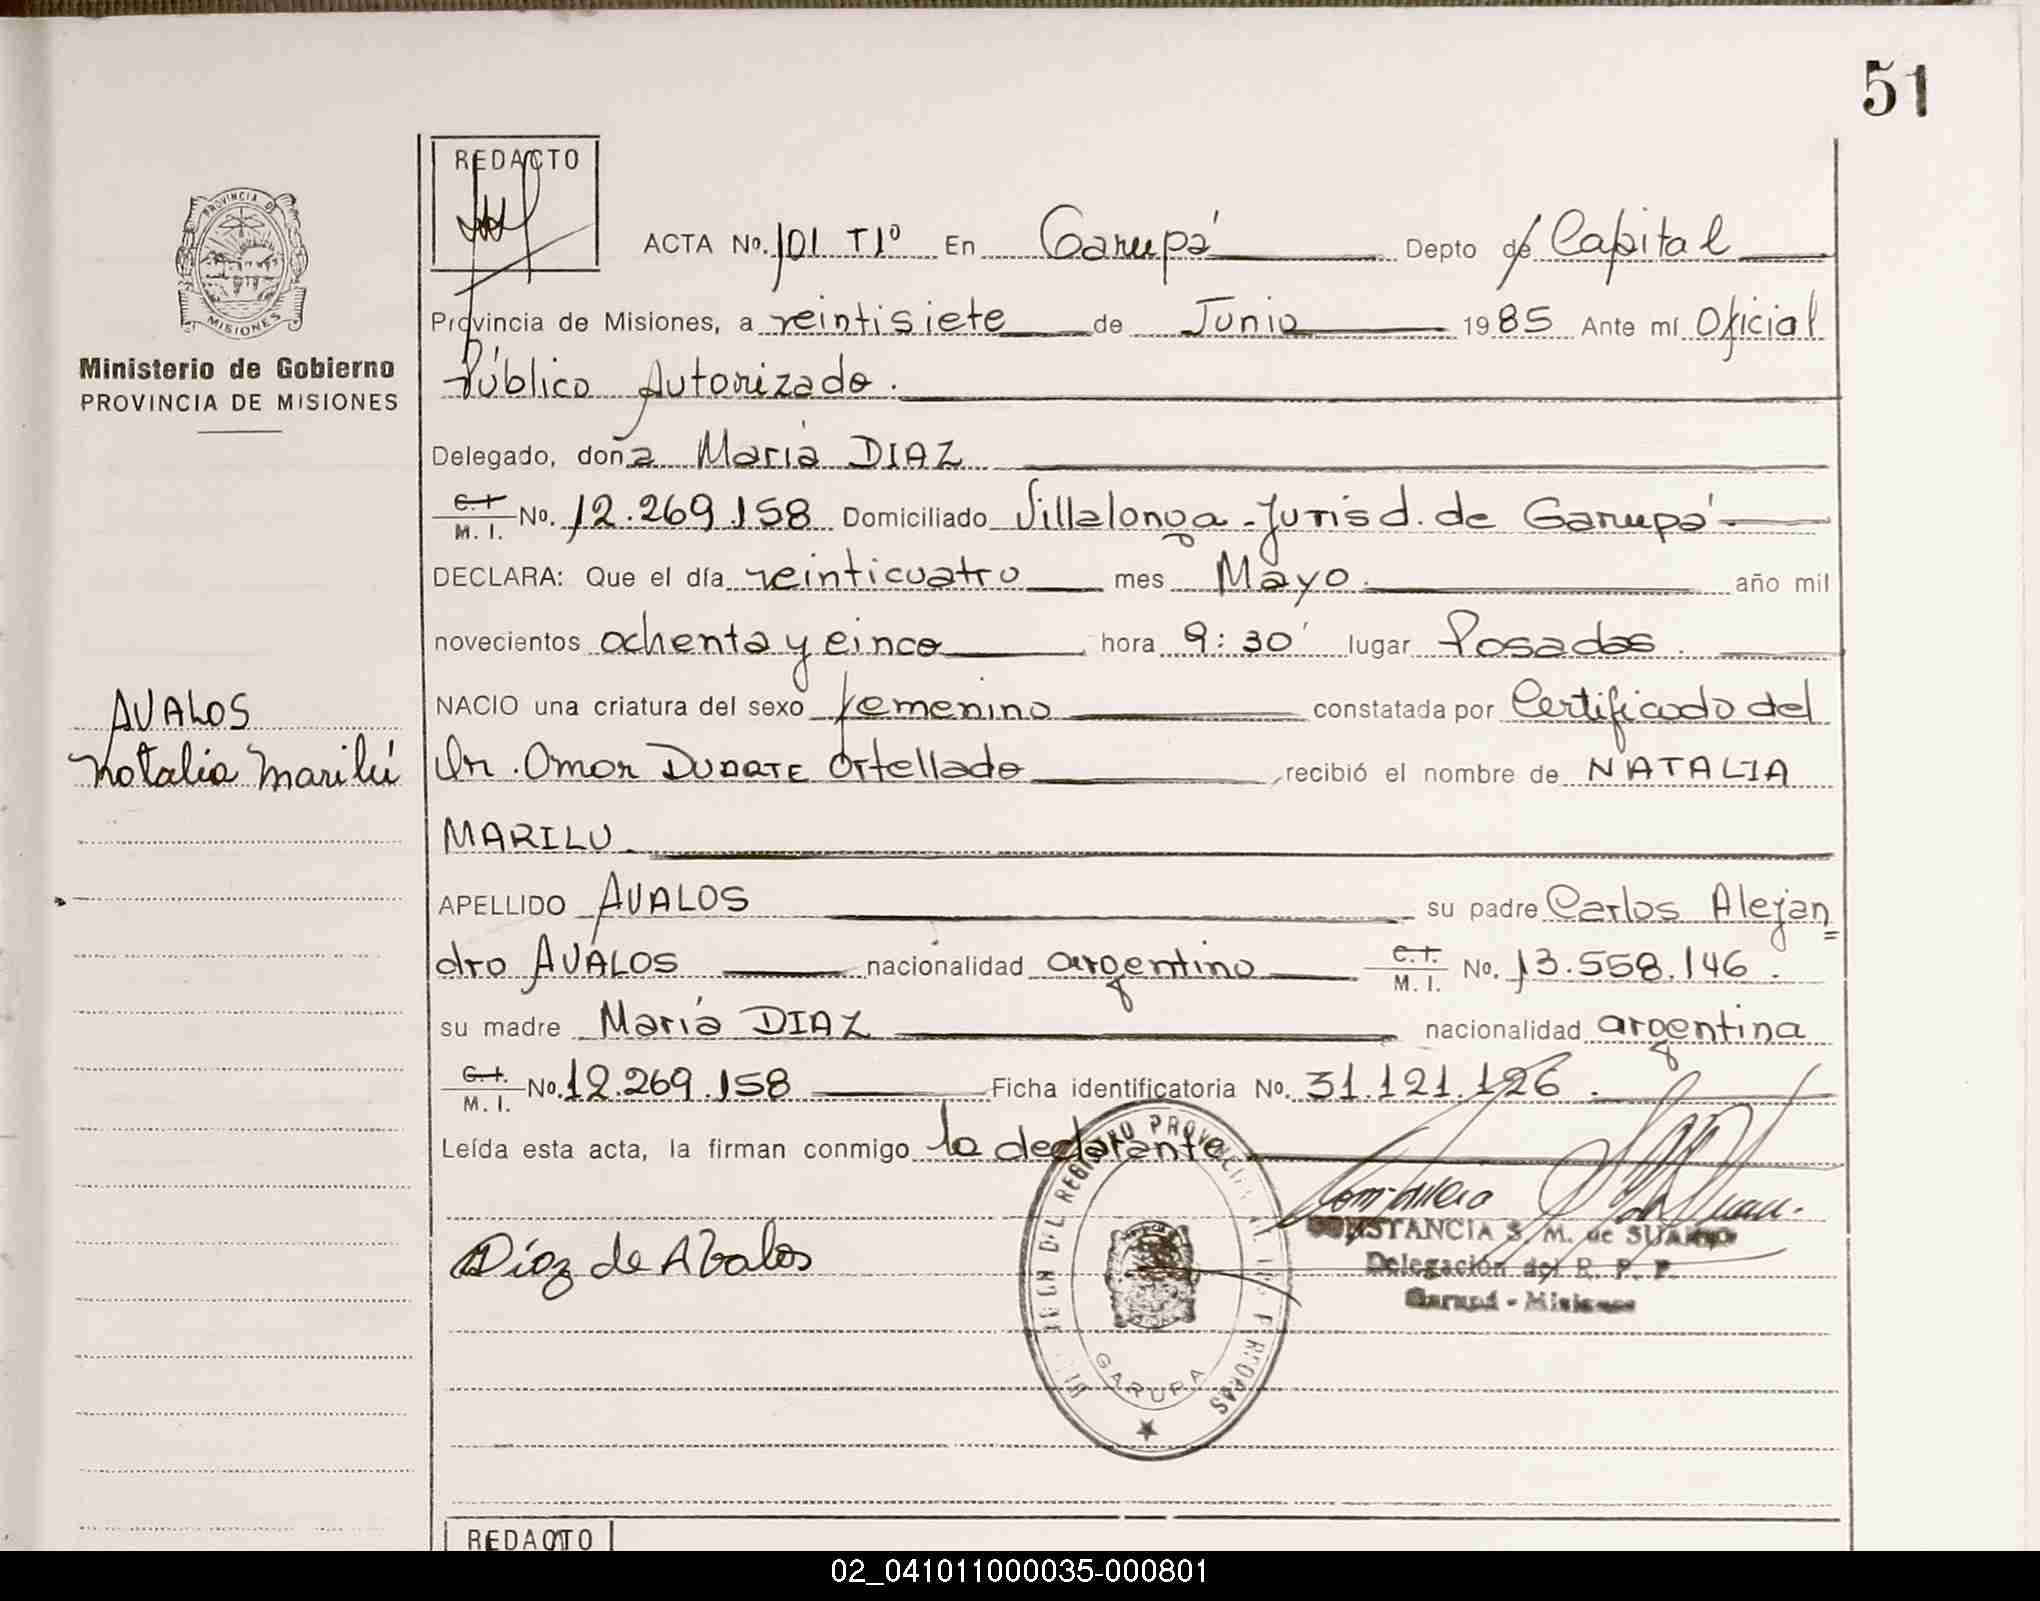 51
REDACTO
PROVINCIA DE
MISIONES
Ministerio de Gobierno
PROVINCIA DE MISIONES
ACTA No. 101 T1º En Garupá Depto de Capital
Provincia de Misiones, a veintisiete de Junio 1985 Ante mí Oficial
Público Autorizado.
Delegado, doña María DIAZ
C.I. M. I. No. 12.269.158 Domiciliado Villalonga - Jurisd. de Garupá
DECLARA: Que el día veinticuatro mes Mayo. año mil
novecientos ochenta y cinco hora 9:30' lugar Posadas.
NACIO una criatura del sexo femenino constatada por Certificado del
AVALOS
Natalia Marilú
Dr. Omar DUARTE Ortellado recibió el nombre de NATALIA
MARILU.
APELLIDO AVALOS su padre Carlos Alejan=
dro AVALOS nacionalidad argentino C.I. M. I. No. 13.558.146.
su madre María DIAZ nacionalidad argentina
C.I. M. I. No. 12.269.158 Ficha identificatoria No. 31.121.126.
Leída esta acta, la firman conmigo la declarante
Díaz de Abalos
CONSTANCIA S. M. de
Delegación del R. P. P.
Garupá - Misiones
DEL REGISTRO PROVINCIAL DE
GARUPA
REDACTO
02_041011000035-000801